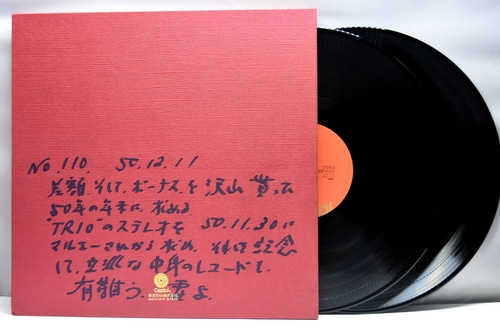 No.110. 50.12.11
差額、そして、ボーナスを沢山貰って
50年の年末に求める
"TRIO"のステレオを 50.11.30に
マルエーさんから求め、それを記念
して、立派な中身のレコードを。
有難う。
Capitol